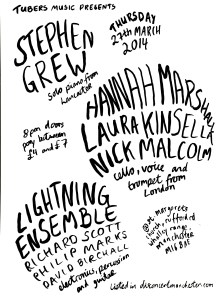 TUBERS MUSIC PRESENTS
THURSDAY
27TH MARCH
2014
STEPHEN
GREW
solo piano from
Lancaster
HANNAH MARSHALL
LAURA KINSELLA
NICK MALCOLM
cello, voice and
trumpet from
London
8pm doors
pay between
£4 and £7
LIGHTNING
ENSEMBLE
RICHARD SCOTT
PHILLIP MARKS
DAVID BIRCHALL
electronics, percussion
and guitar
@St. Margarets
church, rufford rd
whalley range,
manchester
M16 8AE
Listed in